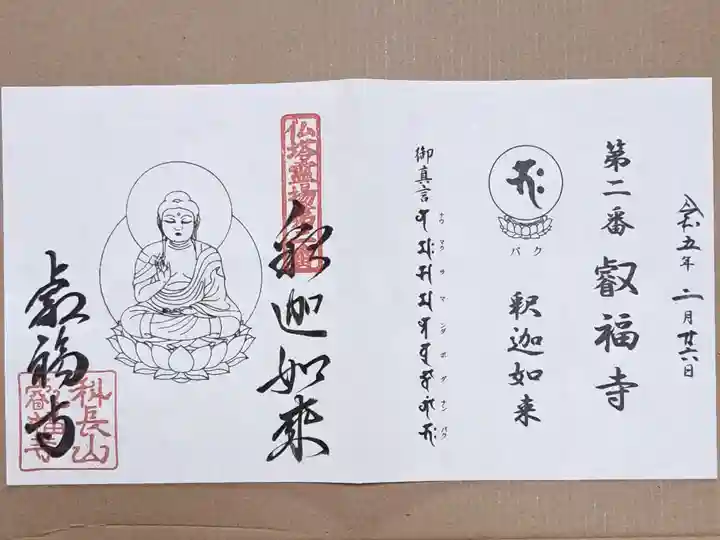 令和五年 二月廿六日
第二番 叡福寺
バク
釈迦如来
御真言
ナウ マク サ マン ダ ボ ダ ナン バク
釈迦如来
叡福寺
科長山